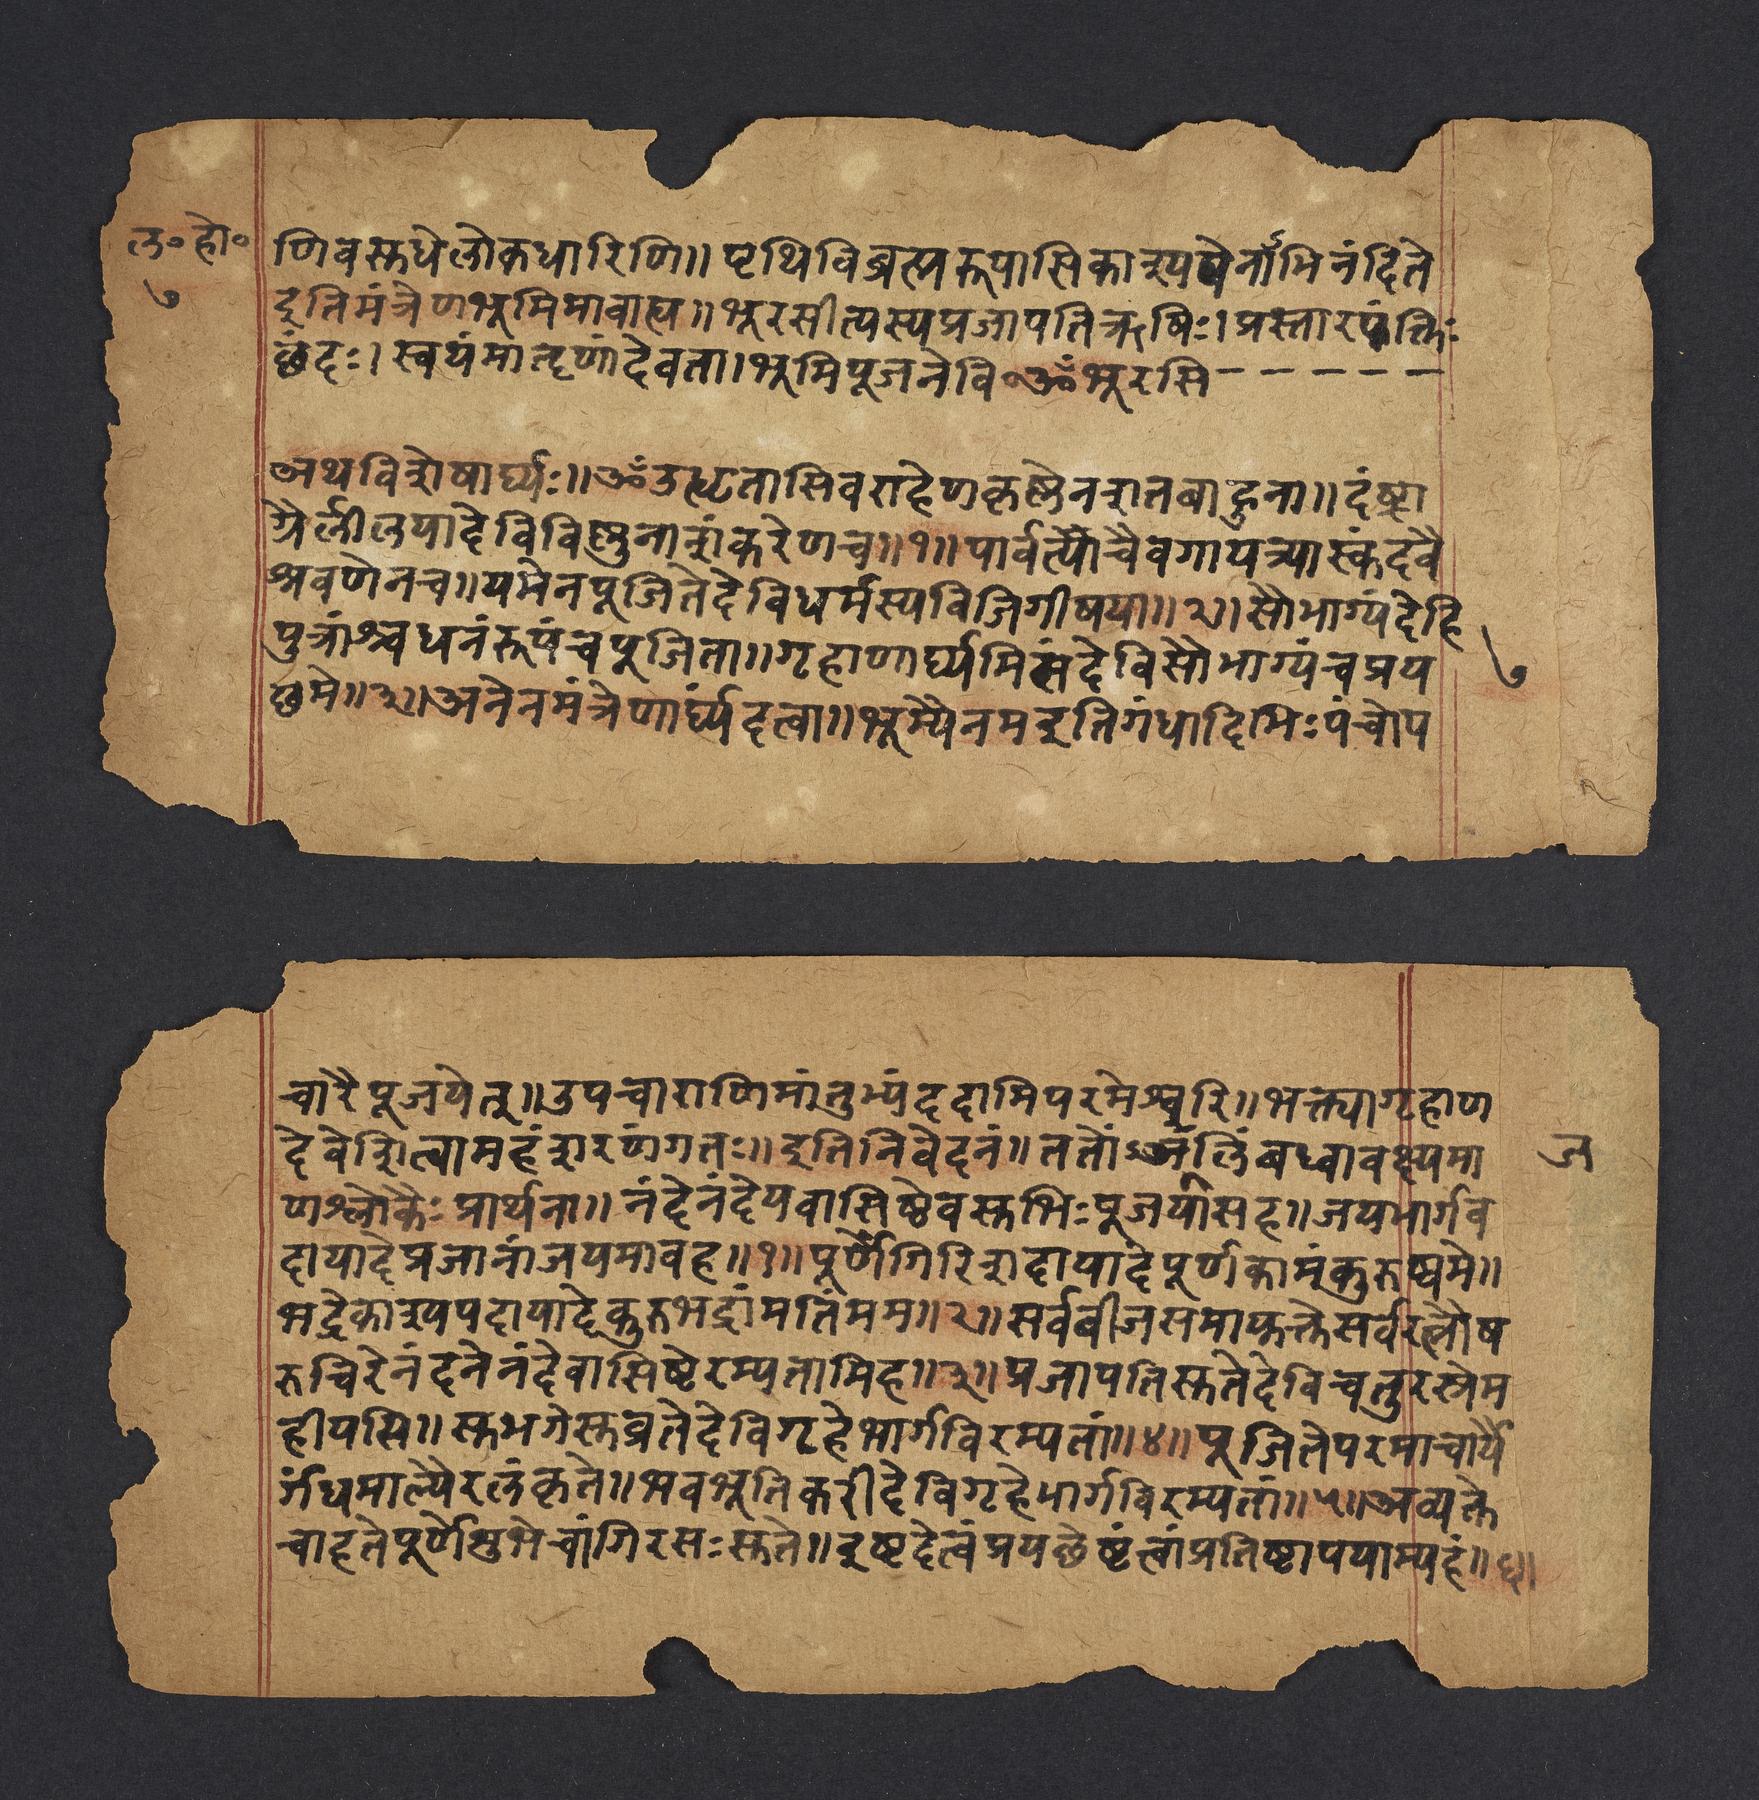 ल॰हो॰
७
णिवसुधेलोकधारिणि॥पृथिविब्रह्मरूपासिकाश्यपेर्नौमिनंदिते
इतिमंत्रेणभूमिमावाह्य॥भूरसीत्यस्यप्रजापतिऋषिः।प्रस्तारपंक्तिः
छंदः।स्वयंमातृणांदेवता।भूमिपूजनेवि॰ॐभूरसि-----
अथविशेषार्घ्यः॥ॐउत्धृतासिवराहेणकृष्णेनशतबाहुना॥दंष्ट्रा
ग्रैर्लीलयादेविविष्णुनाशंकरेणच॥१॥पार्वत्याचैवगायत्र्यास्कंदवै
श्रवणेनच॥यमेनपूजितेदेविधर्मस्यविजिगीषया॥२॥सौभाग्यंदेहि
पुत्रांश्चधनंरूपंचपूजिता॥गृहाणार्घ्यमिसंदेविसौभाग्यंचप्रय
छमे॥३॥अनेनमंत्रेणार्घ्यंदत्वा॥भूम्यैनमइतिगंधादिभिःपंचोप
७
चारैपूजयेत्॥उपचाराणिमांतुभ्यंददामिपरमेश्वरि॥भक्त्यागृहाण
देवेशित्वामहंशरणंगतः॥इतिनिवेदनं॥ततोंऽजलिंबध्वावक्ष्यमा
णश्लोकैःप्रार्थना॥नंदेनंदेयवासिष्ठेवसुभिःपूजयासह॥जयभार्गव
दायादेप्रजानांजयमावह॥१॥पूर्णेगिरिशदायादेपूर्णकामंकुरुष्वमे॥
भद्रेकाश्यपदायादेकुरुभद्रांमतिंमम॥२॥सर्वबीजसमायुक्तेसर्वरत्नौष
रुचिरेनंदनेनंदेवासिष्टेरम्यतामिह॥३॥प्रजापतिसुतेदेविचतुरस्रेम
हीयसि॥सुभगेसुव्रतेदेविगृहेभार्गविरम्यतां॥४॥पूजितेपरमाचार्यै
र्गंधमाल्यैरलंकृते॥भवभूतिकरीदेविगृहेभार्गविरम्यतां॥५॥अव्यक्ते
चाहतेपूर्णेशुभेचांगिरसःसुते॥इष्टदेत्वंप्रयछेष्टंत्वांप्रतिष्टापयाम्यहं॥६॥